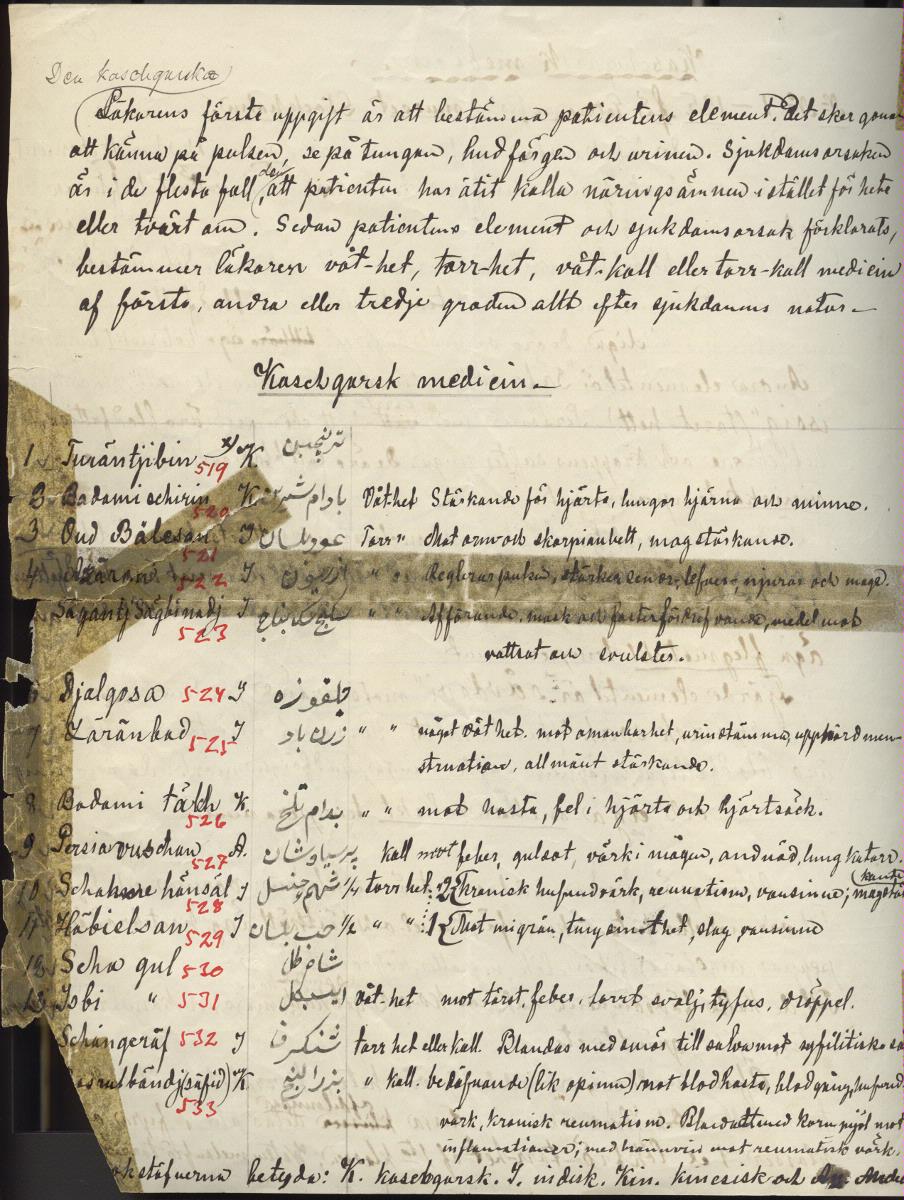 Den kaschgarska
Läkarens första uppgift är att bestämma patientens element. Det sker genom
att känna på pulsen, se på tungan, hudfärgen och urinen. Sjukdomsorsaken
är i de flesta fall den, att patienten har ätit kalla näringsämnen i stället för heta
eller tvärt om. Sedan patientens element och sjukdomsorsak förklarats,
bestämmer läkaren våt-het, torr-het, våt-kall eller torr-kall medicin
af första, andra eller tredje graden allt efter sjukdomens natur.—
Kaschgarsk medicin.—
1 Turäntjibin x) 519 K ترنجبین
2 Badami schirin 520 K بادام شیرین Våt-het Stärkande för hjärta, lungor hjärna och minne.
3 Oud Bälesan 521 I عود بلسان Torr " Mot orm och skorpionbett, magstärkande.
4 522 I " " Reglerar pulsen, stärker senor, lefver, njurar och mage.
Sägäntj Sägbinadj 523 I " " Afförande, mask och fosterfördrifvande, medel mot
vattsot och svulster.
6 Djalgosa 524 I جلغوزه
7 Zäränbad 525 I زرنباد " " något våt het. mot omanbarhet, urinstämma, upphörd men-
struation, allmänt stärkande.
8 Badami täkh 526 K. بدام تلخ " " mot hosta, fel i hjärta och hjärtsäck.
9 Persiavuschan 527 A. پرسیاوشان kall mot feber, gulsot, värk i magen, andnöd, lungkatarr.
10 Schahme hänsäl 528 I شحم حنسل 1/4 torr het: 2 Kronisk hufvudvärk, reumatism, vansinne;
11 Häbielsan 529 I حب بلسان 1/2 " " : 1 Mot migrän, tungsinthet, slag, vansinne
12 Scha gul 530 شاه گل
13 Isbi " 531 ایسبگل våt-het mot törst, feber, torrt svalj, tyfus, dröppel.
Schängeräf 532 I شنگرف torr het eller kall. Blandas med smör till salva mot syfilitiska
(säfid) K 533 " kall. bedöfvande (lik opium) mot blodhosta, blodgång, hufvud
värk, kronisk reumatism. Blandatt med kornmjöl mot
inflamationer; med brännvin mot reumatisk värk.
betyda: K. kaschgarsk. I. indisk. Kin. kinesisk och